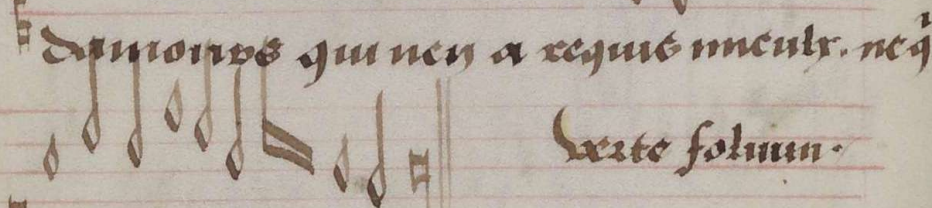 damones qui nen a requis uncults. ne q
verte folium.